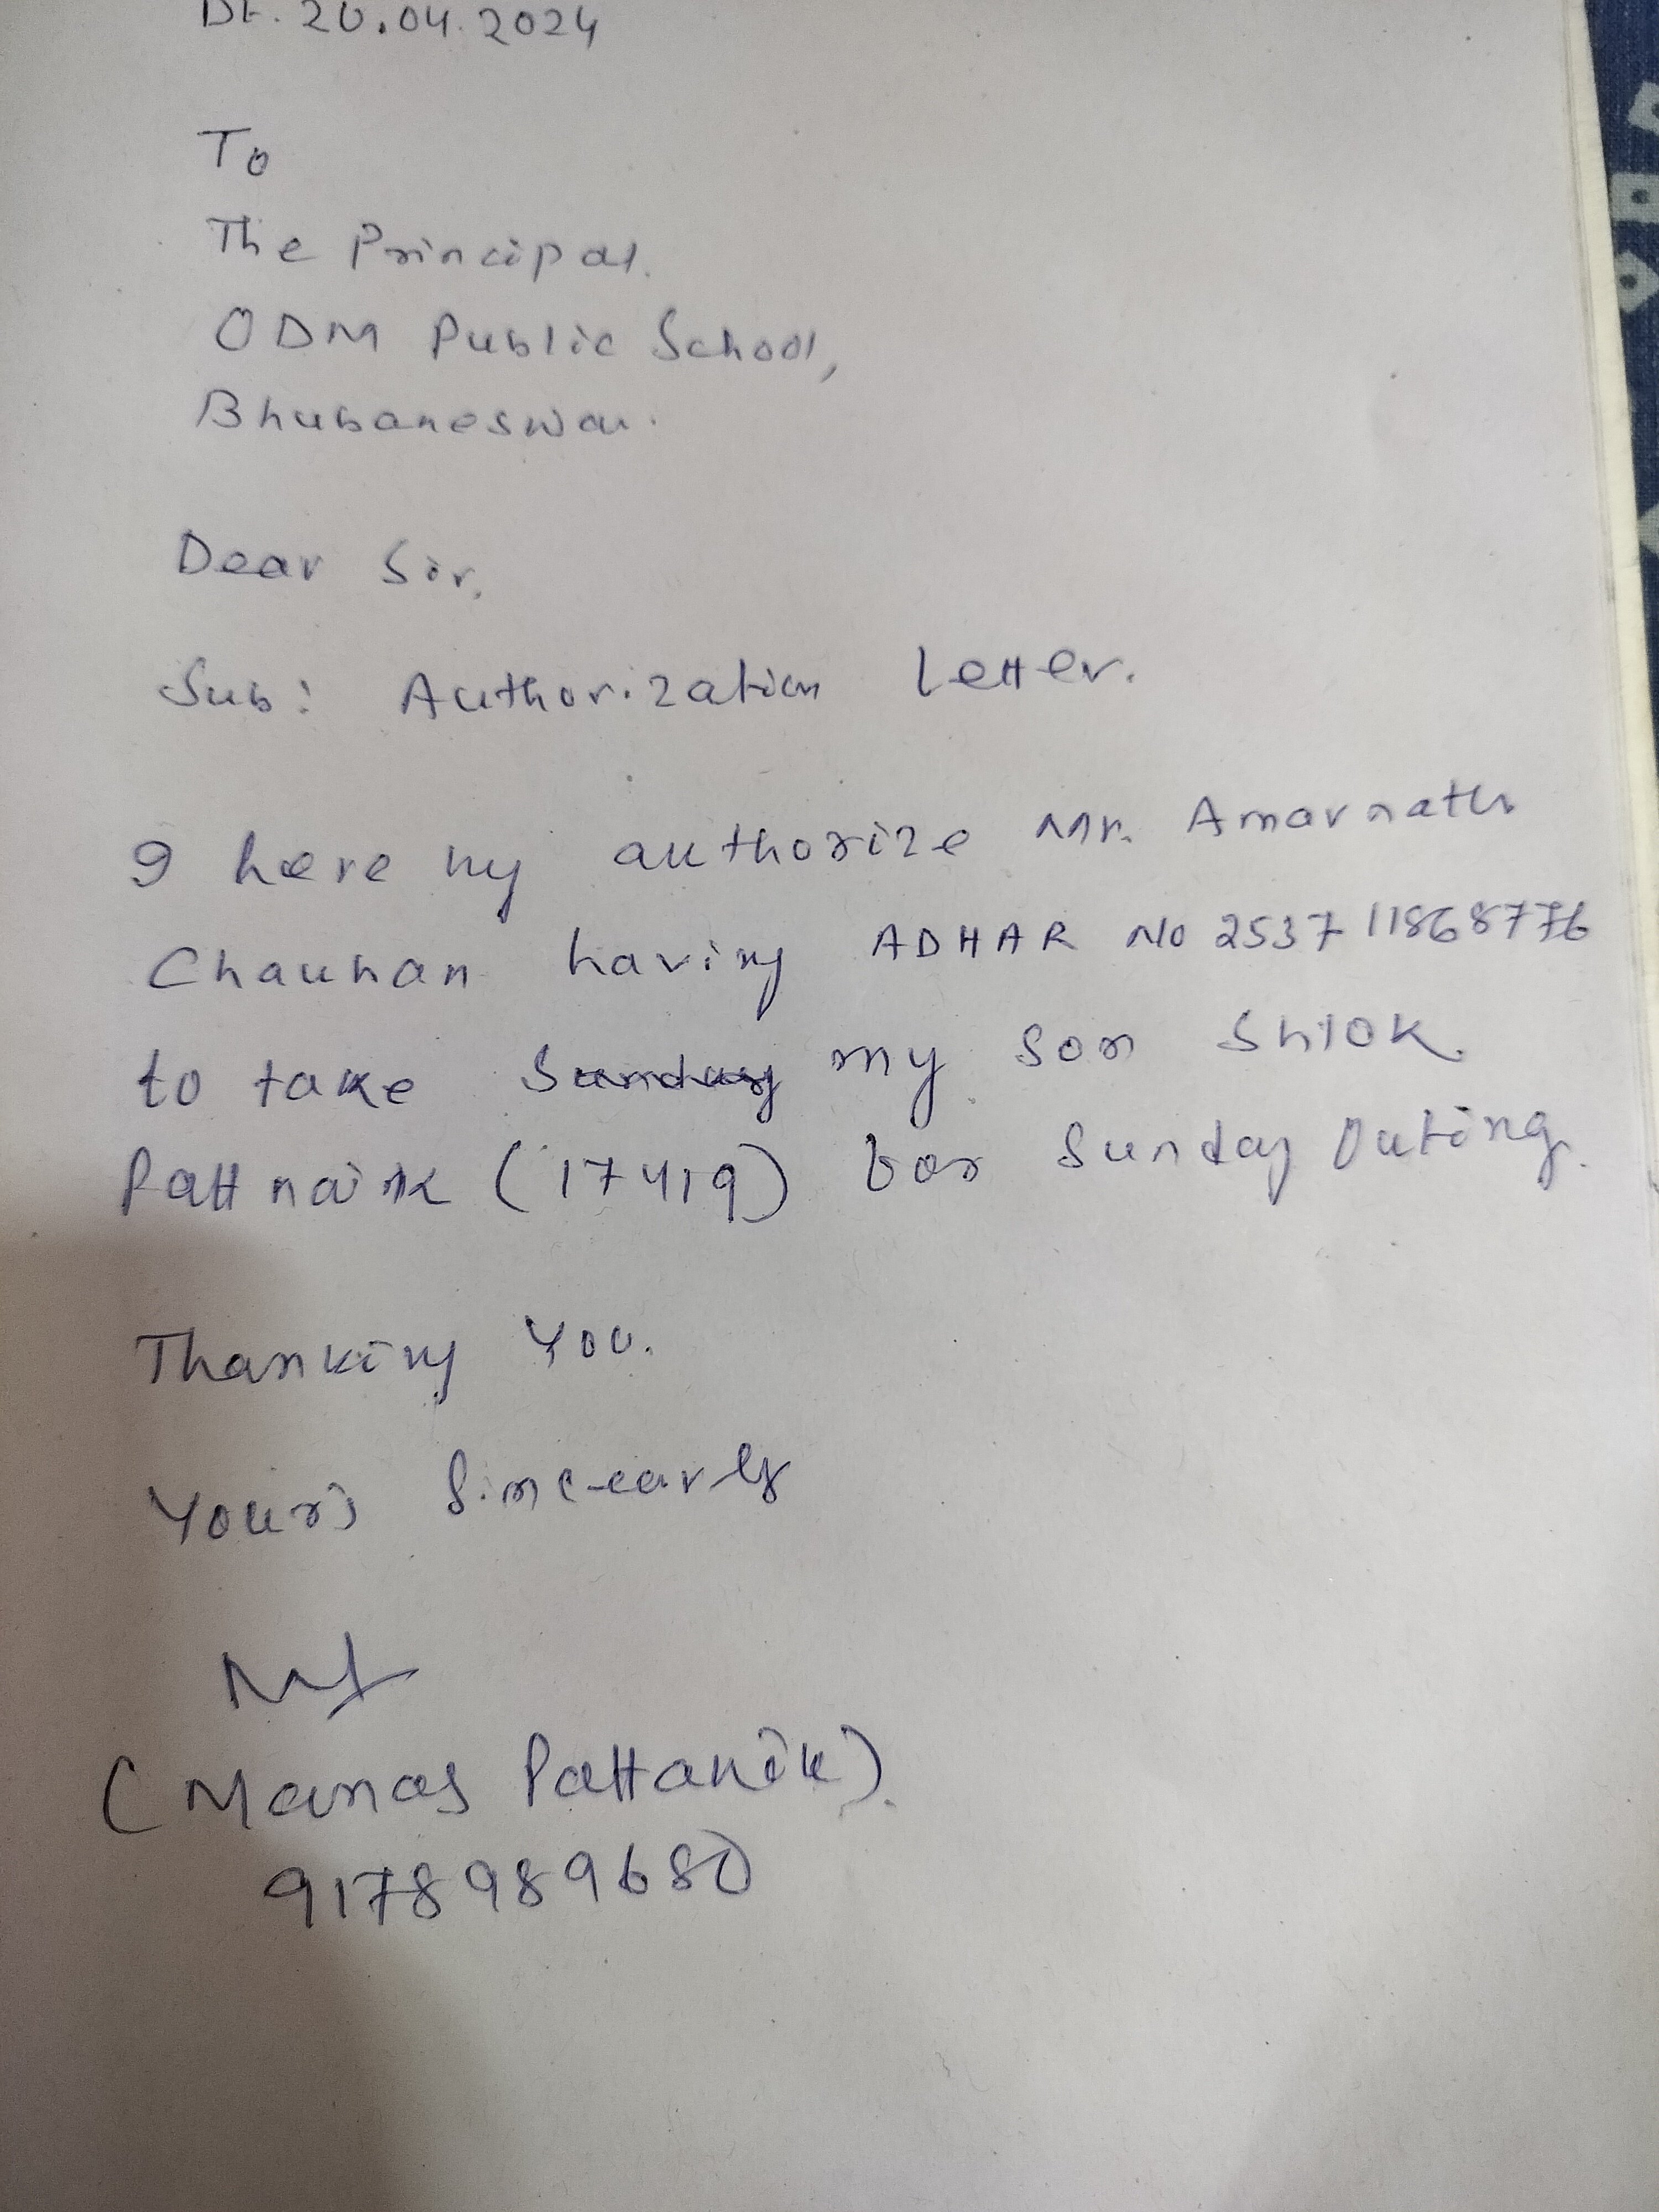 Dt. 20.04.2024
To
The Principal.
ODM Public School,
Bhubaneswar.
Dear Sir,
Sub: Authorization Letter.
I here by authorize Mr. Amarnath
Chauhan having ADHAR NO 2537 11868776
to take Sunday my son Shlok
Pattnaik (17419) for Sunday Outing.
Thanking You.
Yours Sincearly
(Manas Pattanik).
9178989680